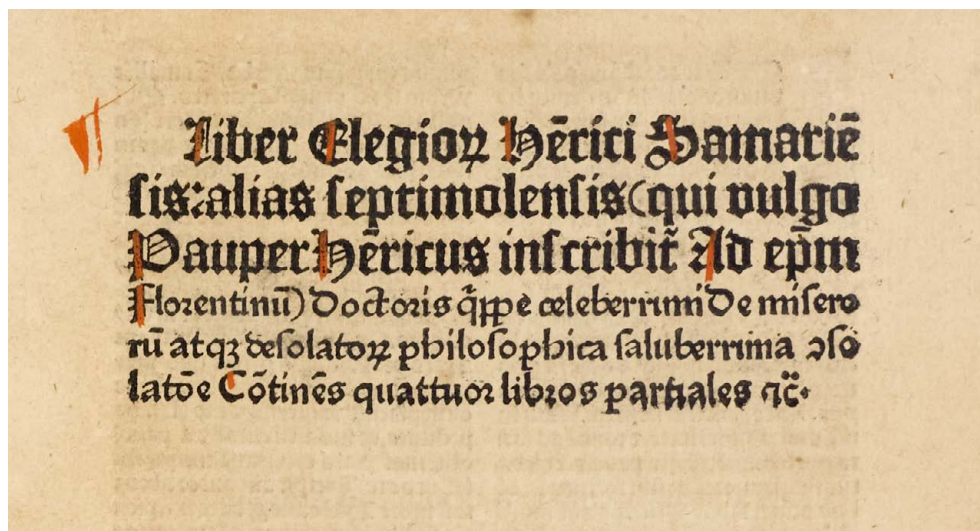 Liber Elegioꝝ Hẽrici Samariẽ
ſis: alias ſeptimolenſis (qui vulgo
Pauper Hẽricus inſcribit᷑ Ad ep̃m
Florentinũ) Doctoris q̃ꝓpe celeberrimi De miſero
rũ atqꝫ deſolatoꝝ philoſophica ſaluberrima ꝯſo
latõe Cõtinẽs quattuor libros partiales ⁊c̃.